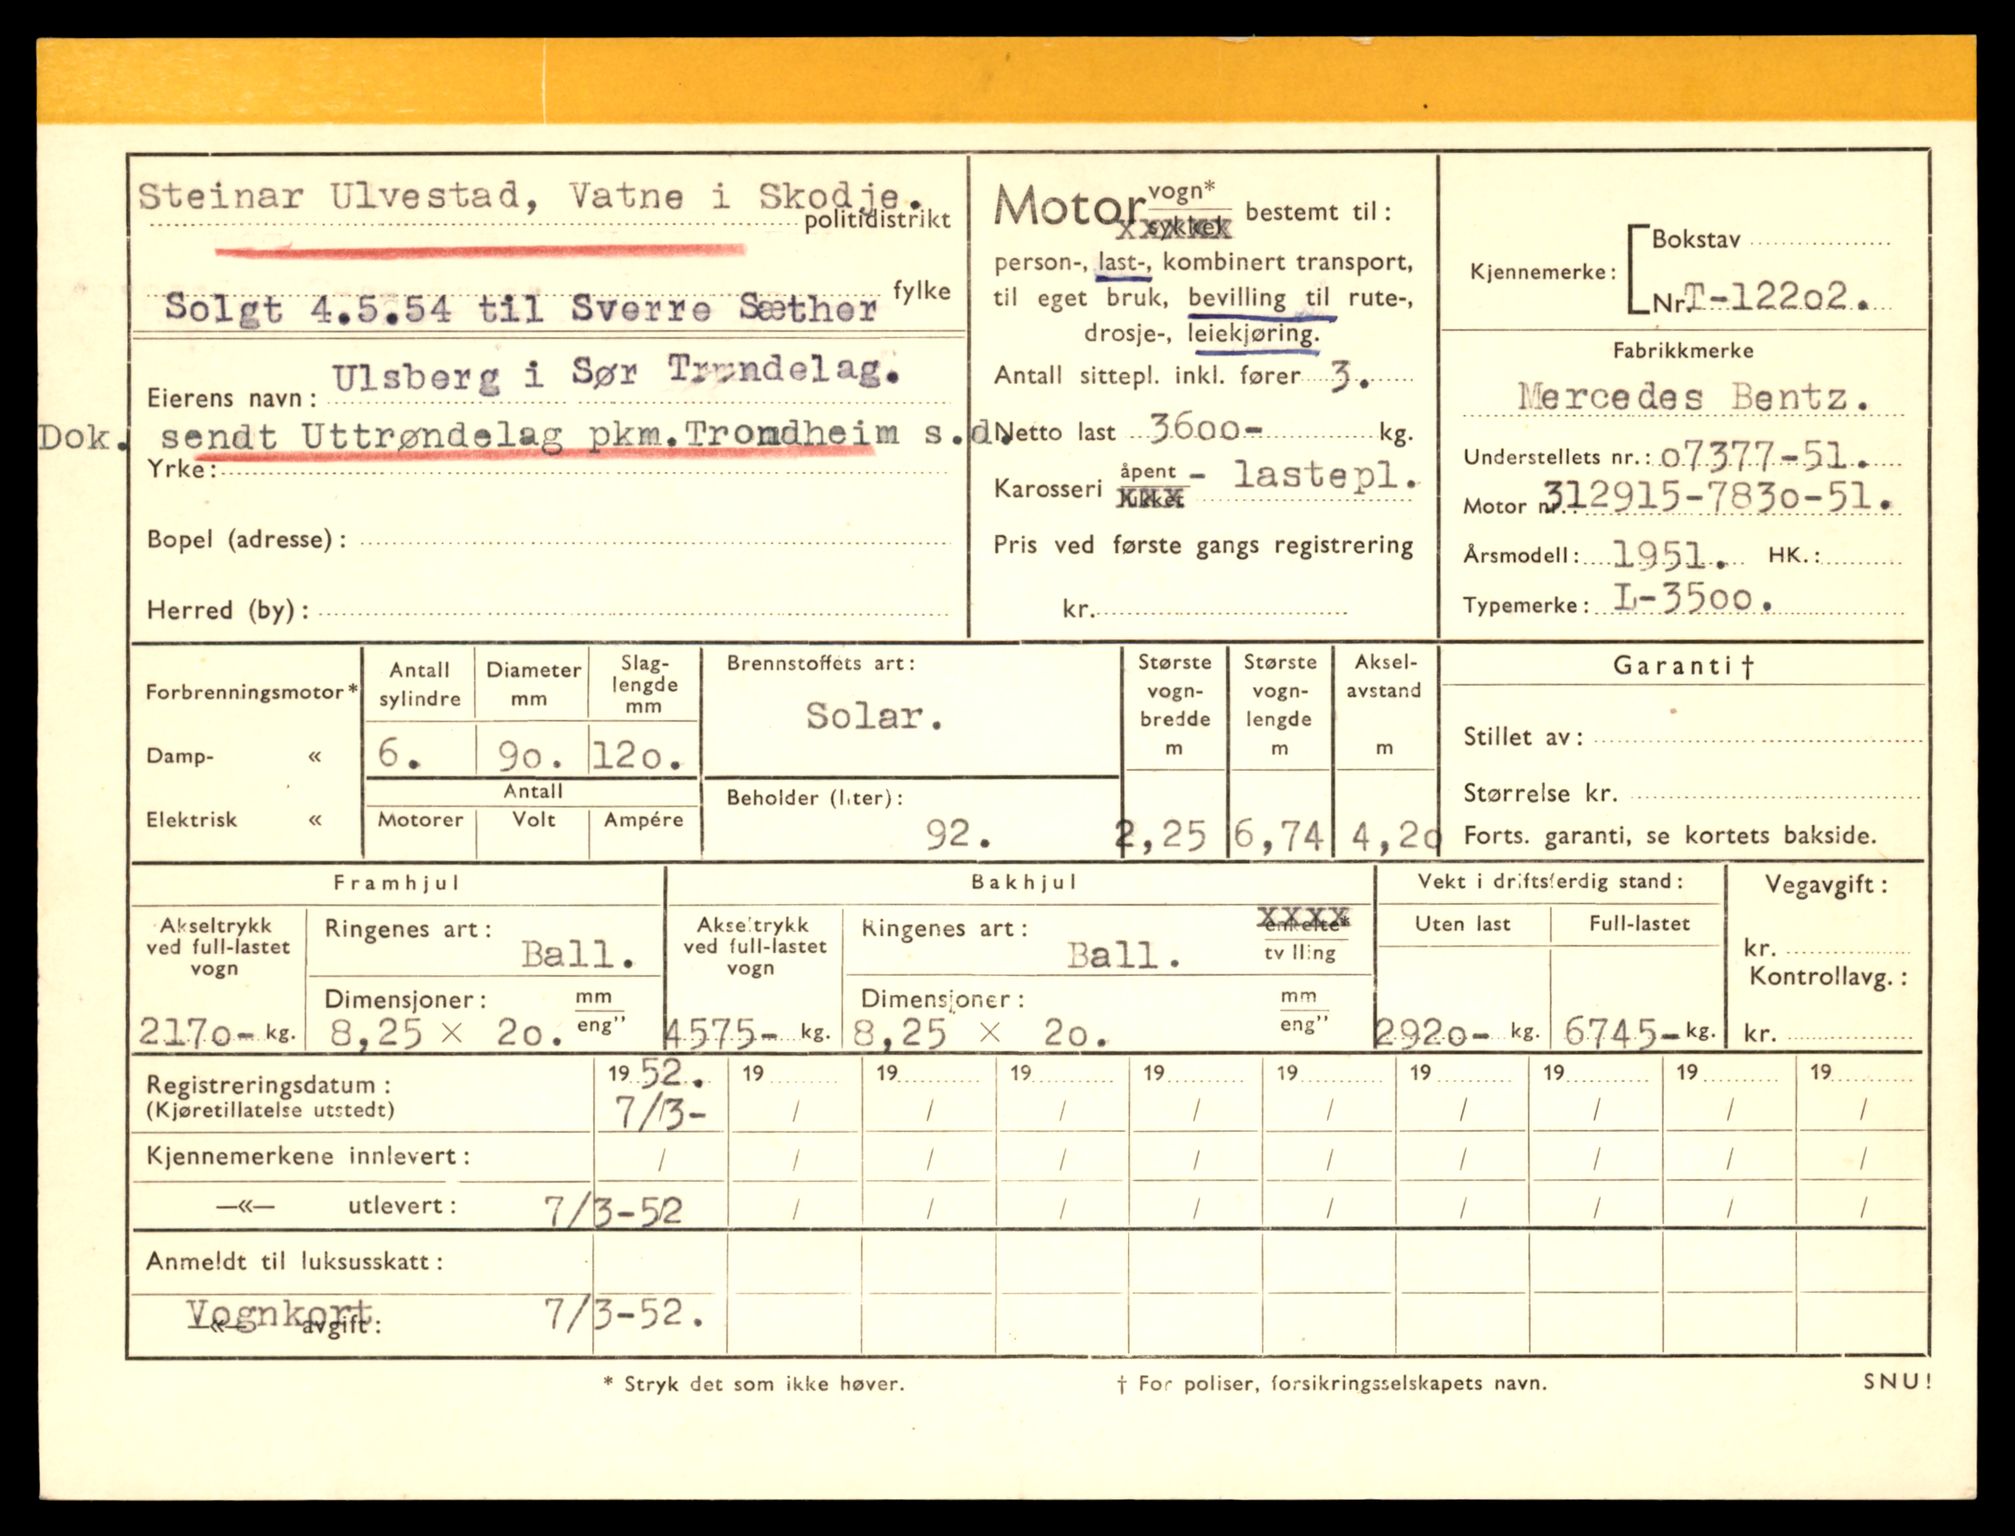 Steinar Ulvestad, Vatne i Skodje.
politidistrikt
fylke
Solgt 4.5.54 til Sverre Sæther
Eierens navn: Ulsberg i Sør Trøndelag.
Dok. sendt Uttrøndelag pkm.Trondheim s.d.
Yrke:
Bopel (adresse):
Herred (by):
Motor vogn*
sykkel bestemt til:
person-, last-, kombinert transport,
til eget bruk, bevilling til rute-,
drosje-, leiekjøring.
Antall sittepl. inkl. fører 3.
Netto last 3600- kg.
Karosseri åpent - lastepl.
lukket
Pris ved første gangs registrering
kr.
Kjennemerke: Bokstav
Nr. T-12202.
Fabrikkmerke
Mercedes Bentz.
Understellets nr.: 07377-51.
Motor nr.: 312915-7830-51.
Årsmodell: 1951. HK.:
Typemerke: L-3500.
Forbrenningsmotor*
Damp- «
Elektrisk «
Antall sylindre
Diameter mm
Slag-lengde mm
6. 90. 120.
Antall
Motorer Volt Ampére
Brennstoffets art:
Solar.
Beholder (liter):
92.
Største vogn-bredde m
Største vogn-lengde m
Aksel-avstand m
2,25 6,74 4,20
Garanti †
Stillet av:
Størrelse kr.
Forts. garanti, se kortets bakside.
Framhjul
Akseltrykk
ved full-lastet
vogn
2170- kg.
Ringenes art:
Ball.
Dimensjoner: mm
eng”
8,25 × 20.
Bakhjul
Akseltrykk
ved full-lastet
vogn
4575- kg.
Ringenes art: enkelte*
Ball. tvilling
Dimensjoner: mm
eng”
8,25 × 20.
Vekt i driftsferdig stand:
Uten last Full-lastet
2920- kg. 6745- kg.
Vegavgift:
kr.
Kontrollavg.:
kr.
Registreringsdatum: 1952. 19 19 19 19 19 19 19 19 19
(Kjøretillatelse utstedt) 7/3- / / / / / / / / /
Kjennemerkene innlevert: / / / / / / / / / /
—«— utlevert: 7/3-52 / / / / / / / / /
Anmeldt til luksusskatt:
Vognkort 7/3-52.
—«— avgift:
* Stryk det som ikke høver. † For poliser, forsikringsselskapets navn. SNU!